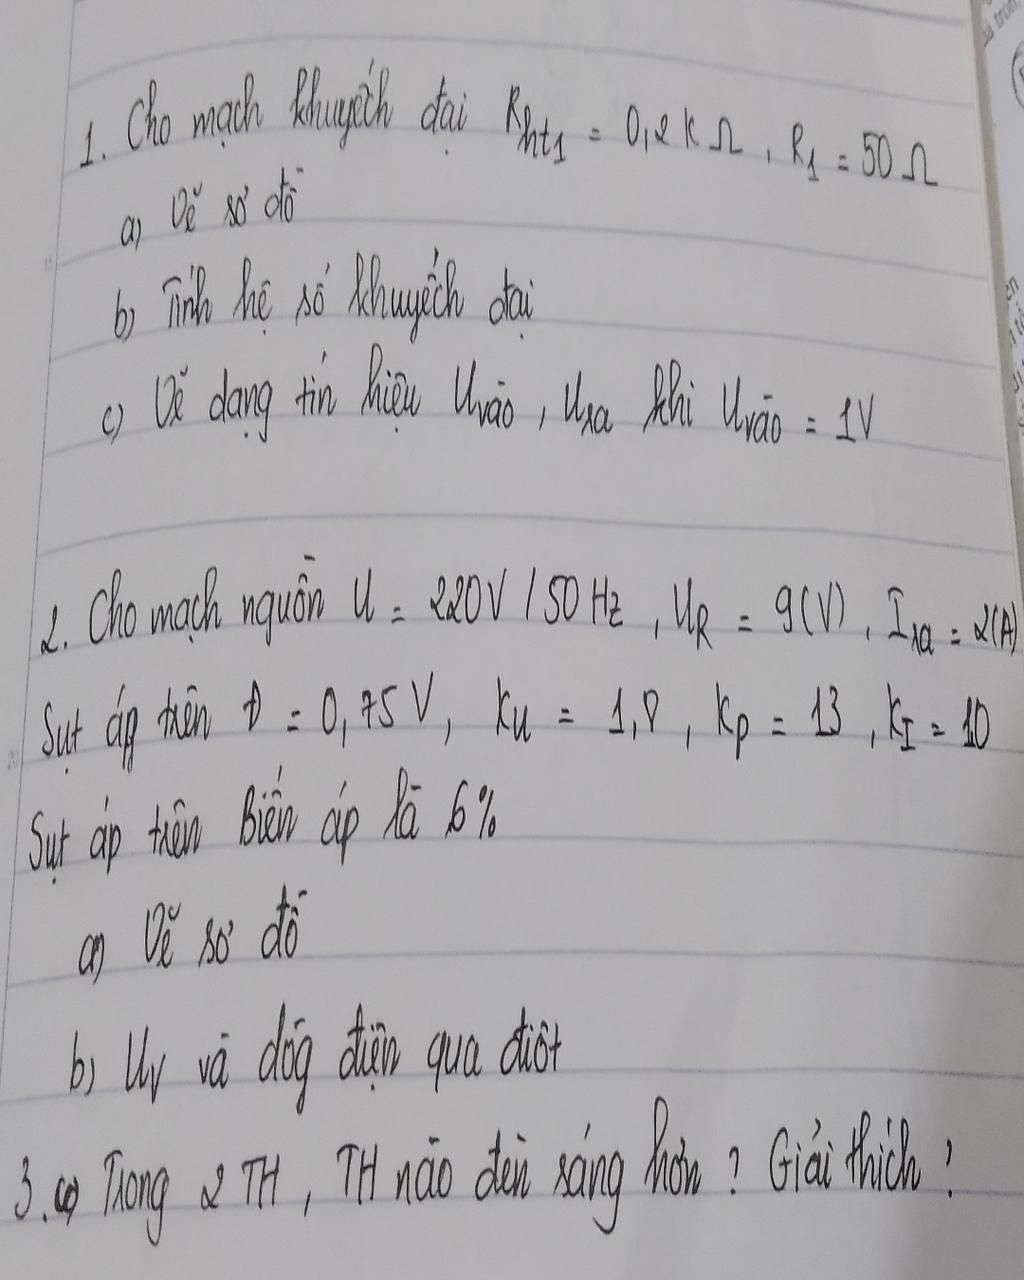 1. Cho mạch khuyếch đại Rht1 = 0,2 K Ω, R1 = 50 Ω
a) Vẽ sơ đồ
b) Tính hệ số khuyếch đại
c) Vẽ dạng tín hiệu Uvào, Ura khi Uvào = 1V
2. Cho mạch nguồn U = 220V / 50 Hz, UR = 9(V), Ira = 2(A)
Sụt áp trên Đ = 0,75 V, Ku = 1,8, Kp = 13, KI = 10
Sụt áp trên Biến áp là 6%
a) Vẽ sơ đồ
b) UV và dòg điện qua điôt
3. Trong 2 TH, TH nào đèn sáng hơn? Giải thích?